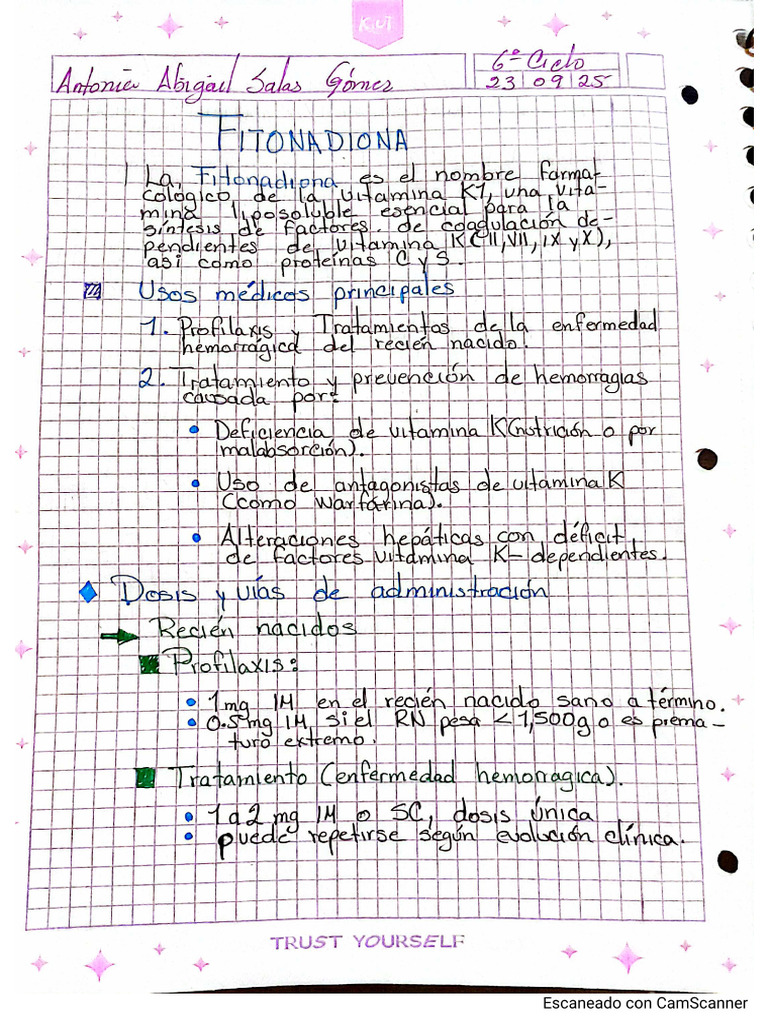 KiUT
Antonia Abigail Salas Gómez
6º Ciclo
23 09 25
FITONADIONA
La, Fitonadiona es el nombre farma-
cológico de la vitamina K1, una vita-
mina liposoluble esencial para la
síntesis de factores. de coagulación de-
pendientes de vitamina K (II, VII, IX y X),
así como proteínas C y S.
Usos médicos principales
1. Profilaxis y Tratamientos de la enfermedad
hemorrágica del recién nacido.
2. Tratamiento y prevención de hemorragias
causada por:
• Deficiencia de vitamina K (nutrición o por
malabsorción).
• Uso de antagonistas de vitamina K
(como warfarina).
• Alteraciones hepáticas con déficit
de factores vitamina K- dependientes.
Dosis y vías de administración
Recién nacidos
Profilaxis:
• 1mg IM en el recién nacido sano a término.
• 0.5mg IM si el RN pesa < 1,500g o es prema-
turo extremo.
Tratamiento (enfermedad hemorragica).
• 1 a 2 mg IM o SC, dosis única
• puede repetirse según evolución clínica.
TRUST YOURSELF
Escaneado con CamScanner